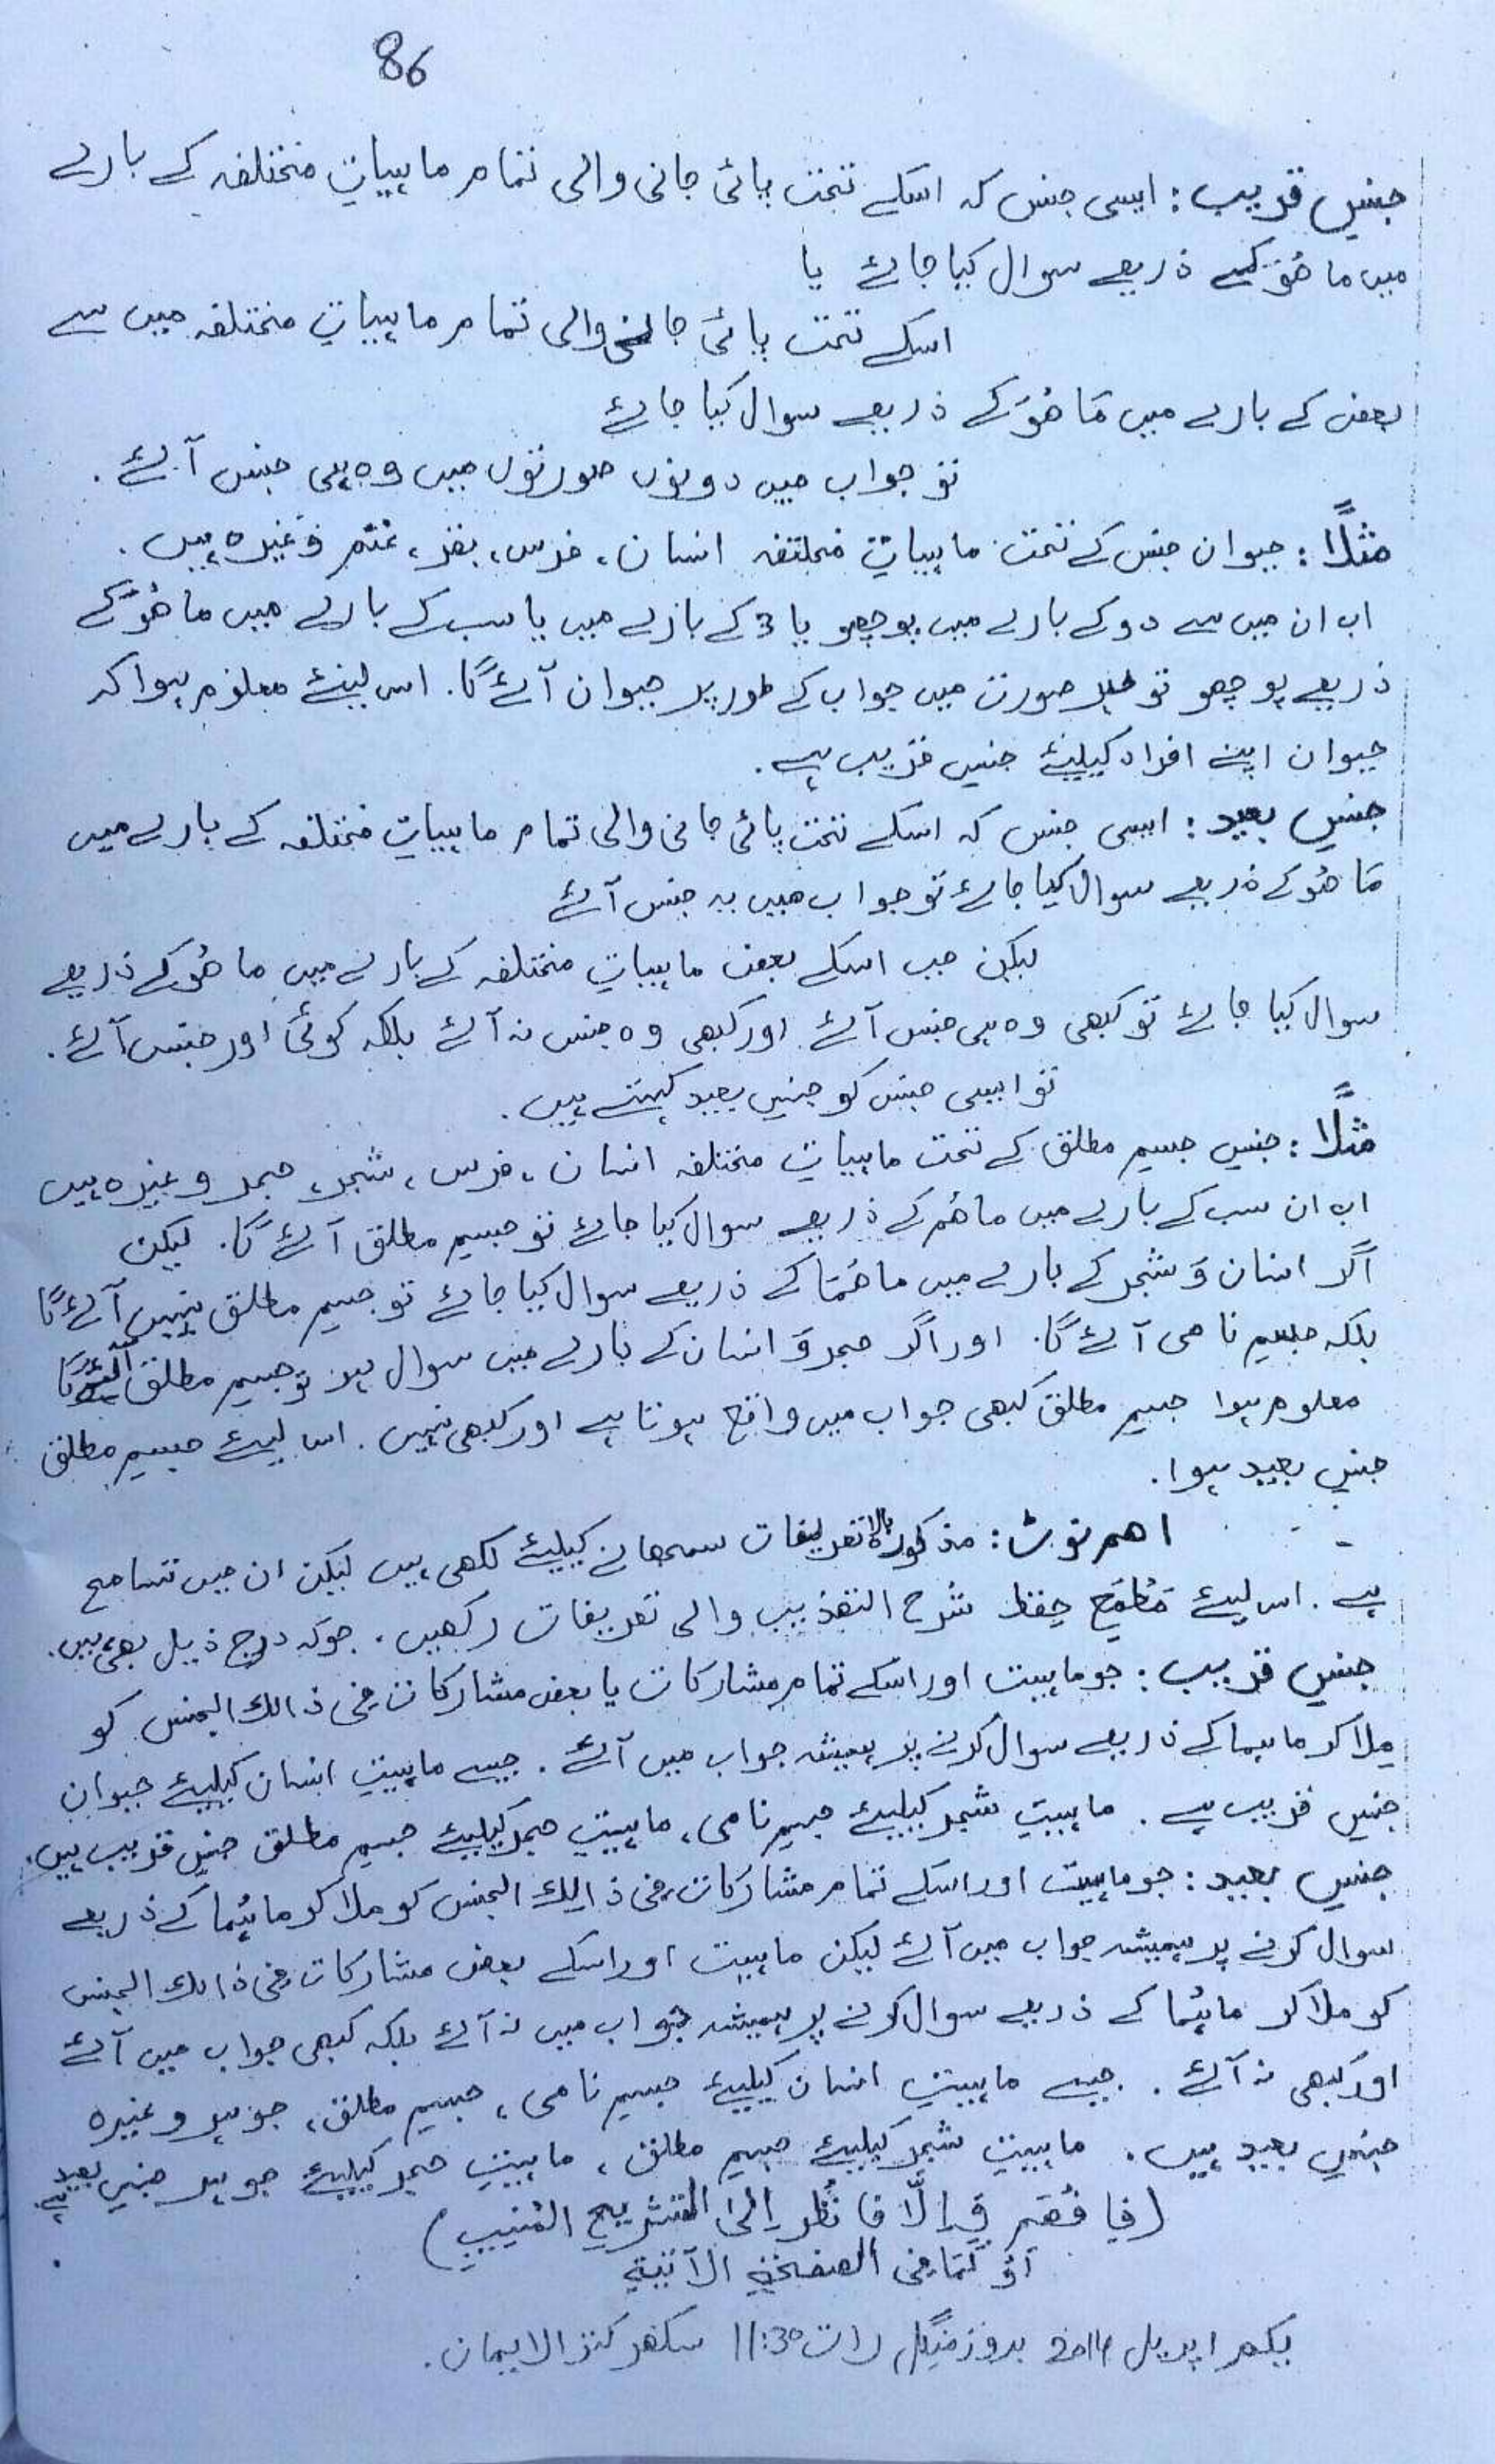 86
جنسِ قریب: ایسی جنس کہ اسکے تحت پائی جانی والی تمام ماہیاتِ مختلفہ کے بارے
میں ما ھُوَ کے ذریعے سوال کیا جائے یا
اسکے تحت پائی جانے والی تمام ماہیاتِ مختلفہ میں سے
بعض کے بارے میں مَا ھُوَ کے ذریعے سوال کیا جائے
تو جواب میں دونوں صورتوں میں وہ ہی جنس آئے۔
مثلًا: حیوان جنس کے تحت ماہیاتِ مختلفہ انسان، فرس، بقر، غنم وغیرہ ہیں۔
اب ان میں سے دو کے بارے میں پوچھو یا 3 کے بارے میں یا سب کے بارے میں ما ھُوَ کے
ذریعے پوچھو تو ہر صورت میں جواب کے طور پر حیوان آئے گا۔ اس لیئے معلوم ہوا کہ
حیوان اپنے افراد کیلیئے جنسِ قریب ہے۔
جنسِ بعید: ایسی جنس کہ اسکے تحت پائی جانی والی تمام ماہیاتِ مختلفہ کے بارے میں
مَا ھُوَ کے ذریعے سوال کیا جائے تو جواب میں یہ جنس آئے
لیکن جب اسکے بعض ماہیاتِ مختلفہ کے بارے میں ما ھُوَ کے ذریعے
سوال کیا جائے تو کبھی وہ ہی جنس آئے اور کبھی وہ جنس نہ آئے بلکہ کوئی اور جنس آئے۔
تو ایسی جنس کو جنسِ بعید کہتے ہیں۔
مثلًا: جنسِ جسمِ مطلق کے تحت ماہیاتِ مختلفہ انسان، فرس، شجر، حجر وغیرہ ہیں
اب ان سب کے بارے میں ما ھُم کے ذریعے سوال کیا جائے تو جسمِ مطلق آئے گا۔ لیکن
اگر انسان وَ شجر کے بارے میں ما ھُمَا کے ذریعے سوال کیا جائے تو جسمِ مطلق نہیں آئے گا
بلکہ جسمِ نامی آئے گا۔ اور اگر حجر وَ انسان کے بارے میں سوال ہو تو جسمِ مطلق آئے گا
معلوم ہوا جسمِ مطلق کبھی جواب میں واقع ہوتا ہے اور کبھی نہیں۔ اس لیئے جسمِ مطلق
جنسِ بعید ہوا۔
اھم نوٹ: مذکورہ بالا تعریفات سمجھانے کیلیئے لکھی ہیں لیکن ان میں تسامح
ہے۔ اس لیئے حفظ شرح التھذیب والی تعریفات رکھیں۔ جو کہ درج ذیل بھی ہیں۔
جنسِ قریب: جو ماہیت اور اسکے تمام مشارکات یا بعض مشارکات فی ذالک الجنس کو
ملا کر ما ہما کے ذریعے سوال کرنے پر ہمیشہ جواب میں آئے۔ جیسے ماہیتِ انسان کیلیئے حیوان
جنسِ قریب ہے۔ ماہیتِ شجر کیلیئے جسمِ نامی، ماہیتِ حجر کیلیئے جسمِ مطلق جنسِ قریب ہیں۔
جنسِ بعید: جو ماہیت اور اسکے تمام مشارکات فی ذالک الجنس کو ملا کر ما ہُما کے ذریعے
سوال کرنے پر ہمیشہ جواب میں آئے لیکن ماہیت اور اسکے بعض مشارکات فی ذالک الجنس
کو ملا کر ما ہُما کے ذریعے سوال کرنے پر ہمیشہ جواب میں نہ آئے بلکہ کبھی جواب میں آئے
اور کبھی نہ آئے۔ جیسے ماہیتِ انسان کیلیئے جسمِ نامی، جسمِ مطلق، جوہر وغیرہ
جنسِ بعید ہیں۔ ماہیتِ شجر کیلیئے جسمِ مطلق، ماہیتِ حجر کیلیئے جوہر جنسِ بعید ہے۔
(فافُھَم وَ اِلَّا فانْظُر اِلیٰ التشریح المُنیب)
اَوْ کَمَا فی الصفحۃِ الآتیۃِ
یکم اپریل 2014 بروز منگل رات 11:30 سکھر کنز الایمان۔